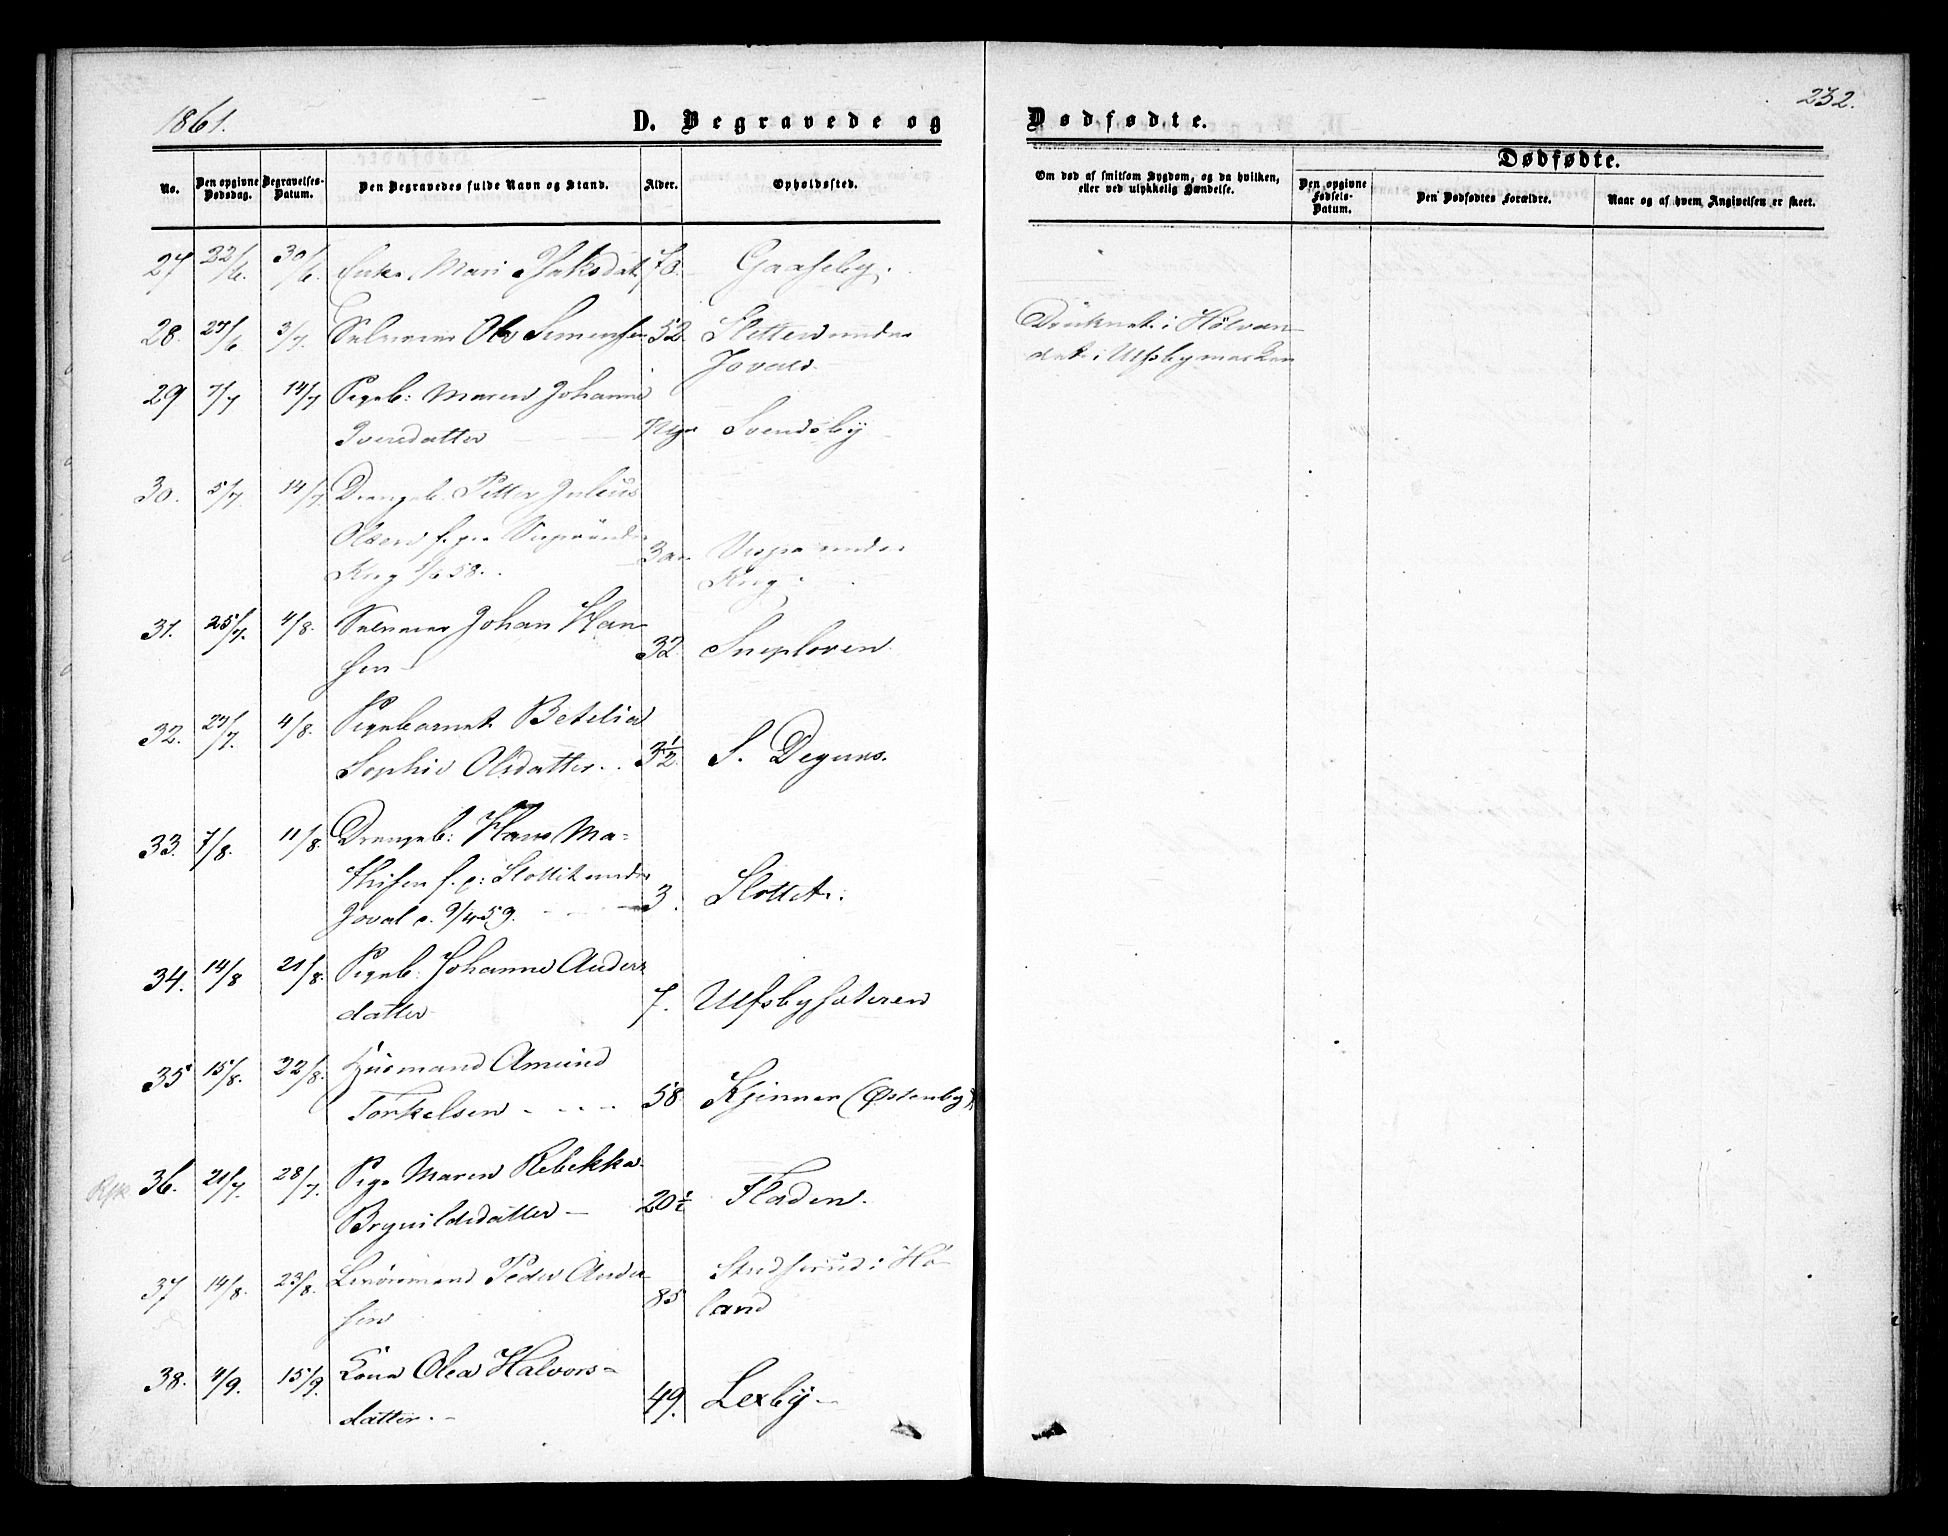 1861.
D. Begravede og
No.
Den opgivne Dødsdag.
Begravelses-Datum.
Den Begravedes fulde Navn og Stand.
Alder.
Opholdssted.
27 22/6. 30/6. Enke Mari 70. Gaaseby.
28. 27/6 3/7. Selveier Ole Simensen 52 Sletten under
Joval
29 7/7 14/7 Pigeb: Maren Johanne
Iversdatter Svendsby
30. 5/7 14/7. Drengeb. Petter Julius
Olsen f. paa under
Krog 58. 3 aar under
Krog.
31. 25/7. 4/8. Selveier Johan Han-
sen 32 Sneploven
32. 27/7. 4/8. Pigebarnet Betilia
Sophie Olsdatter. 3½ S. Deguns.
33. 7/8. 11/8. Drengeb: Hans Ma-
thisen f. p: Slottet under
Joval d. 9/4 59. 3. Slottet.
34. 14/8 21/8. Pigeb: Johanne Anders
datter 7. Ulfsbysæteren
35 15/8. 22/8. Husmand Amund
Torkelsen 58 Kjinner (Østenby)
36. 21/7. 28/7. Pige Maren Rebekka
Brynildsdatter 20½ Fladen.
37 14/8. 23/8. Peder Ander
sen 85 i Hø-
land
38. 4/9. 15/9. Kone Olea Halvors-
datter. 49. Lexby
232.
Dødfødte.
Dødfødte.
Om død af smitsom Sygdom, og da hvilken,
eller ved ulykkelig Hændelse.
Den opgivne Fødsels-Datum.
Den Dødfødtes Forældre.
Naar og af hvem, Angivelsen er skeet.
Druknet i Hølvan-
det i Ulfsbymarken